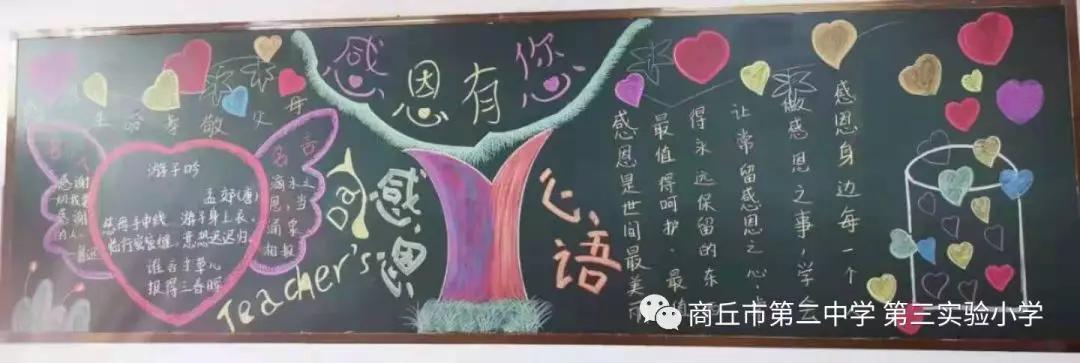 感恩有您
孝敬父母
名言
感谢
感谢
的人
游子吟
孟郊(唐)
慈母手中线 游子身上衣、
临行密密缝，意恐迟迟归、
谁言寸草心
报得三春晖
滴水之
恩，当
涌泉
相报
Teacher's Day
感恩
心语
感恩身边每一个
做感恩之事，学会
让常留感恩之心，
得永远保留的东
最值得呵护、最值
感恩是世间最美丽
商丘市第二中学 第三实验小学